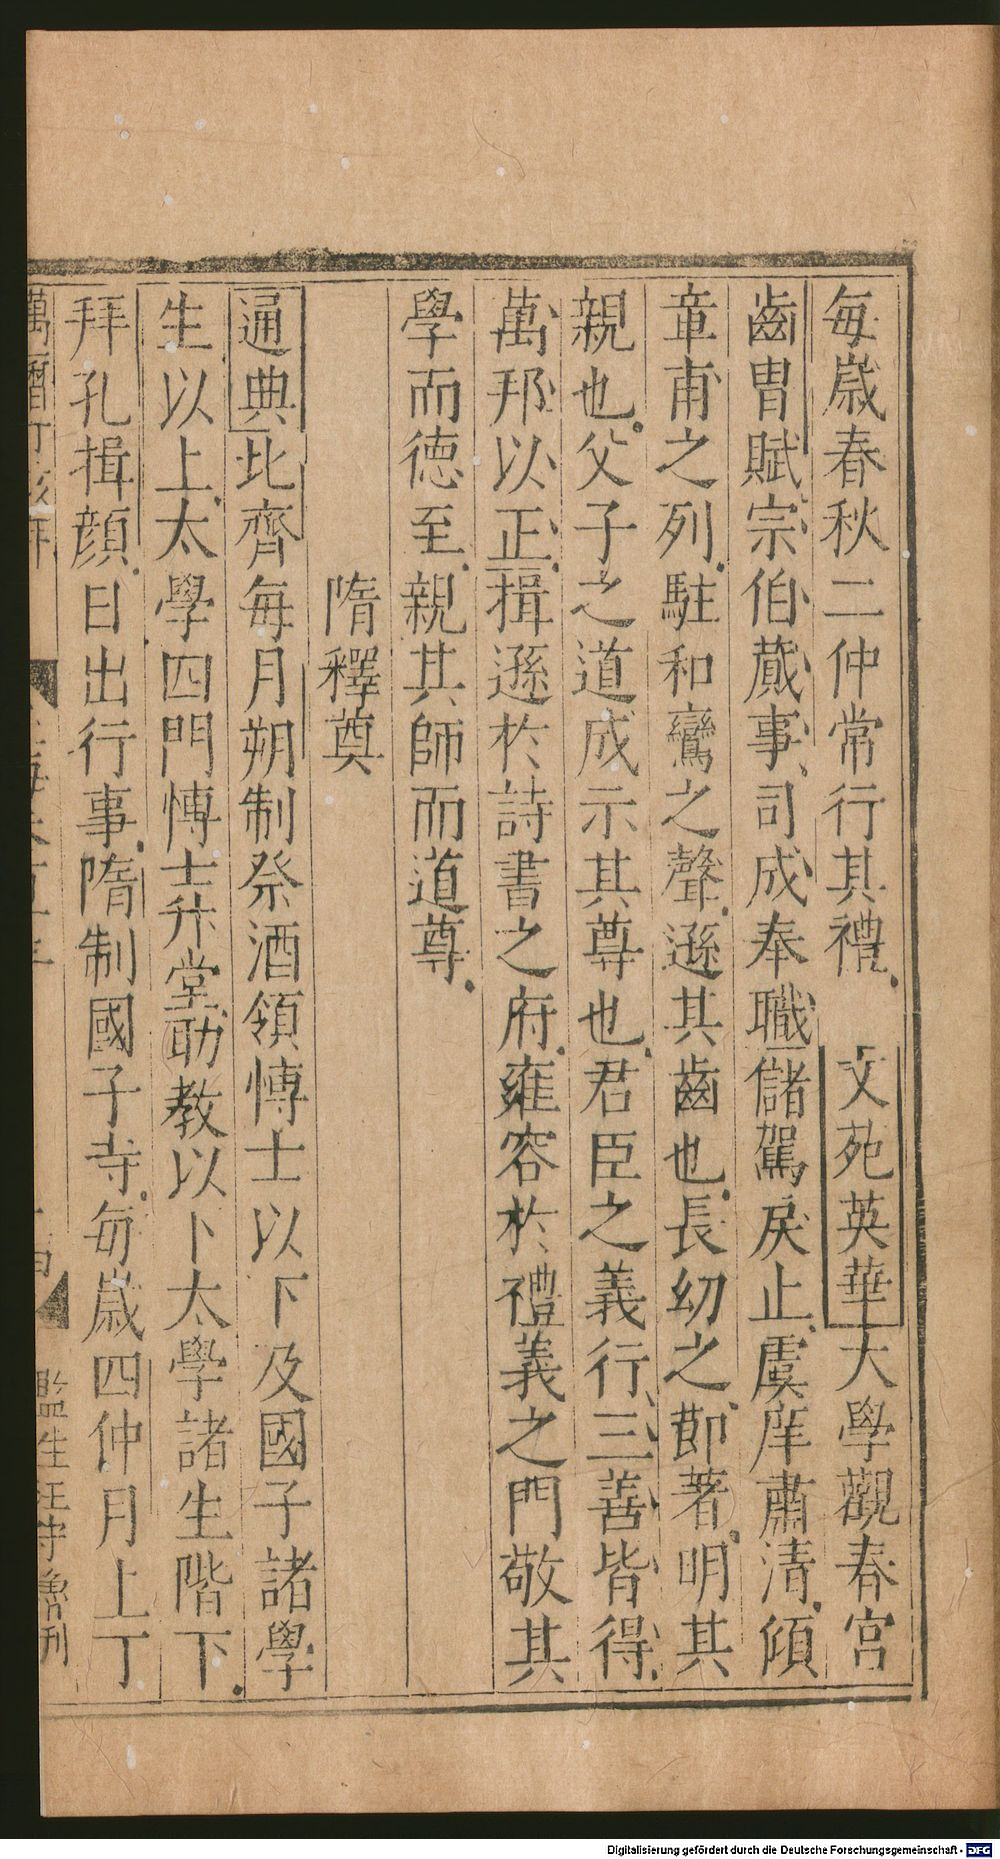 每歲春秋二仲常行其禮　文苑英華大學觀春宮
齒冑賦宗伯蕆事司成奉職儲駕戾止虞庠肅清傾
章甫之列駐和鸞之聲遜其齒也長幼之節著明其
親也父子之道成示其尊也君臣之義行三善皆得
萬邦以正揖遜於詩書之府雍容於禮義之門敬其
學而德至親其師而道尊
隋釋奠
通典北齊每月朔制祭酒領博士以下及國子諸學
生以上太學四門博士升堂助教以下太學諸生階下
拜孔揖顏日出行事隋制國子寺每歲四仲月上丁
萬曆丁亥年
監生汪守魯刊
Digitalisierung gefördert durch die Deutsche Forschungsgemeinschaft - DFG